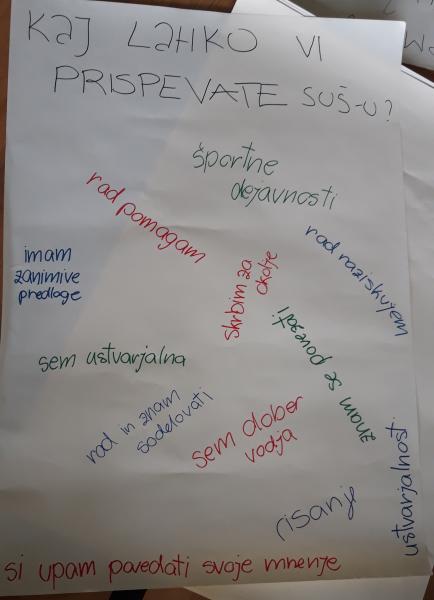 KAJ LAHKO VI
PRISPEVATE SUŠ-U?
športne
dejavnosti
rad pomagam
rad raziskujem
imam
zanimive
predloge
skrbim za
okolje
znam se povezati
sem ustvarjalna
rad in znam
sodelovati
sem dober
vodja
ustvarjalnost
risanje
si upam povedati svoje mnenje